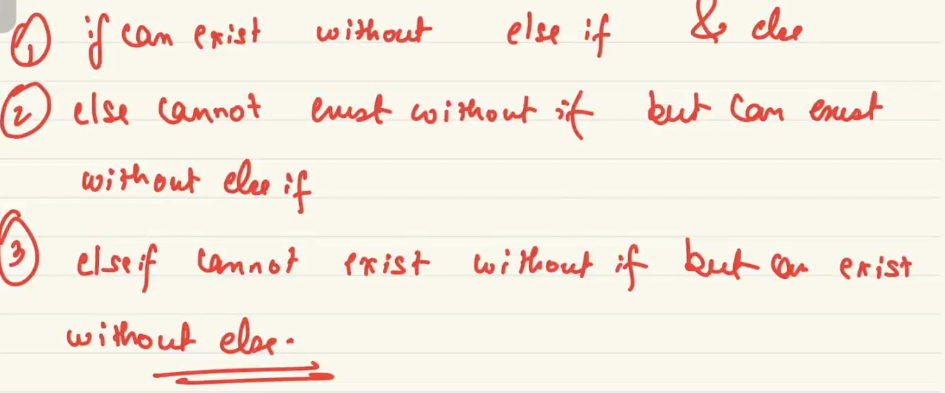 ① if can exist without else if & else
② else cannot exist without if but can exist
without else if
③ else if cannot exist without if but can exist
without else.